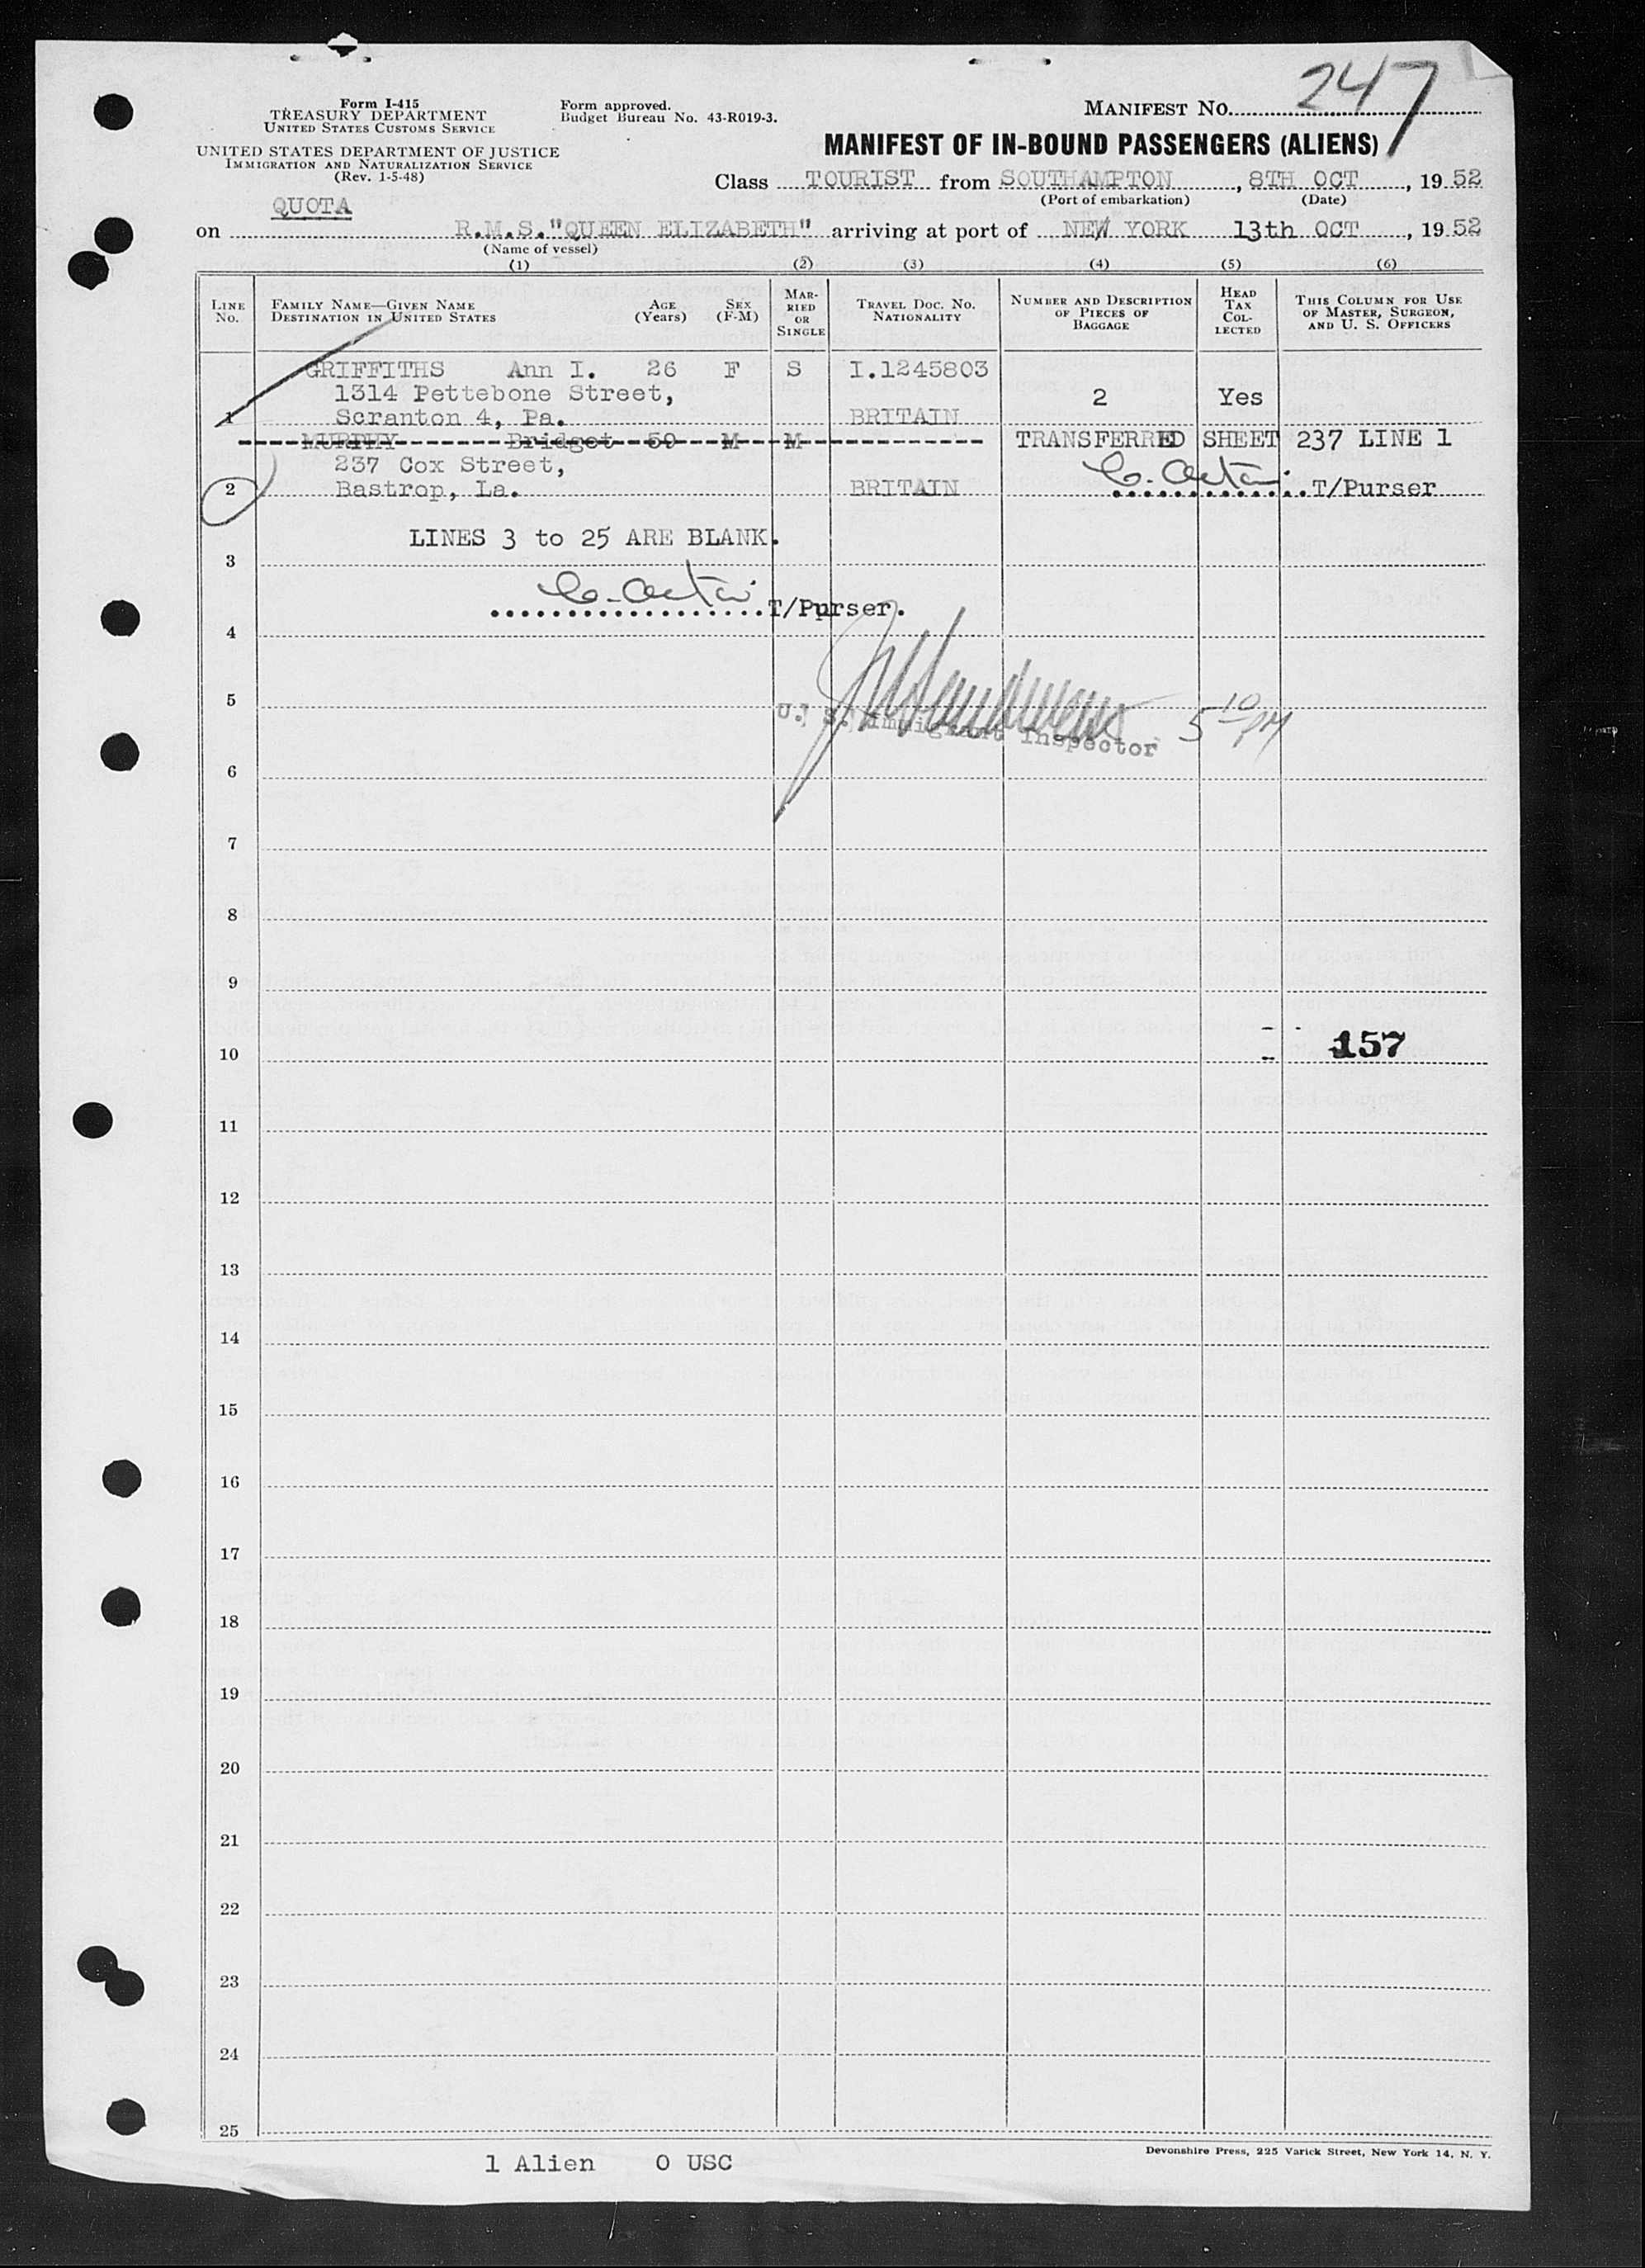 Form I-415
TREASURY DEPARTMENT
UNITED STATES CUSTOMS SERVICE
UNITED STATES DEPARTMENT OF JUSTICE
IMMIGRATION AND NATURALIZATION SERVICE
(Rev. 1-5-48)
Form approved.
Budget Bureau No. 43-R019-3.
MANIFEST NO. 247
MANIFEST OF IN-BOUND PASSENGERS (ALIENS)
Class TOURIST from SOUTHAMPTON, 8TH OCT, 1952
(Port of embarkation) (Date)
QUOTA
on R.M.S."QUEEN ELIZABETH" arriving at port of NEW YORK 13th OCT, 1952
(Name of vessel)
(1) (2) (3) (4) (5) (6)
LINE NO.
FAMILY NAME—GIVEN NAME
DESTINATION IN UNITED STATES
AGE (Years)
SEX (F-M)
MARRIED OR SINGLE
TRAVEL DOC. NO. NATIONALITY
NUMBER AND DESCRIPTION OF PIECES OF BAGGAGE
HEAD TAX COLLECTED
THIS COLUMN FOR USE OF MASTER, SURGEON, AND U. S. OFFICERS
GRIFFITHS Ann I. 26 F S I.1245803
1314 Pettebone Street, 2 Yes
1 Scranton 4, Pa. BRITAIN
MURPHY Bridget 59 M M TRANSFERRED SHEET 237 LINE 1
237 Cox Street,
2 Bastrop, La. BRITAIN T/Purser
LINES 3 to 25 ARE BLANK.
3
T/Purser.
4
5
U. S. Immigrant Inspector 5 10 PM
6
7
8
9
157
10
11
12
13
14
15
16
17
18
19
20
21
22
23
24
25
Devonshire Press, 225 Varick Street, New York 14, N. Y.
1 Alien 0 USC